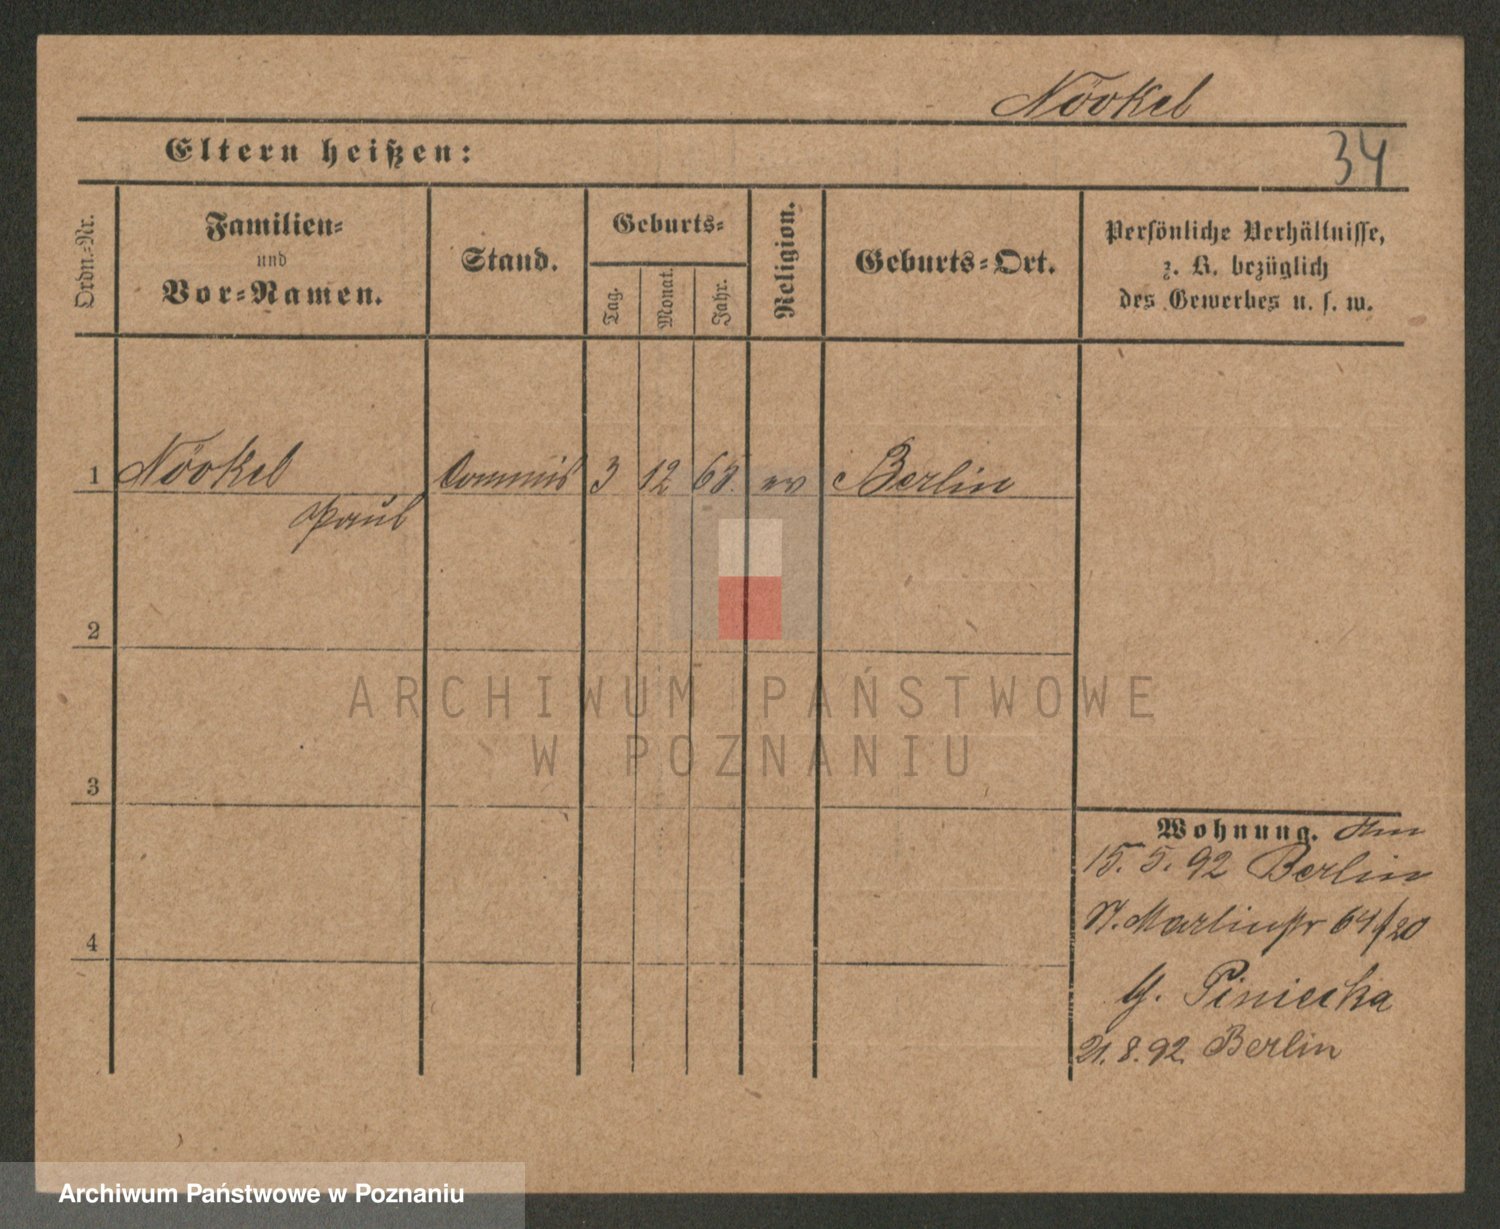 Nöokel
34
Eltern heißen:
Ordn.-Nr.
Familien-
und
Vor-Namen.
Stand.
Geburts-
Tag.
Monat.
Jahr.
Religion.
Geburts-Ort.
Persönliche Verhältnisse,
z. B. bezüglich
des Gewerbes u. s. w.
1 Nöokel Commis 3 12 68. ev Berlin
Paul
2
ARCHIWUM PAŃSTWOWE
W POZNANIU
3
Wohnung.
15. 5. 92 Berlin
St. Martinstr 64/20
G. Piniecka
4
21. 8. 92. Berlin
Archiwum Państwowe w Poznaniu